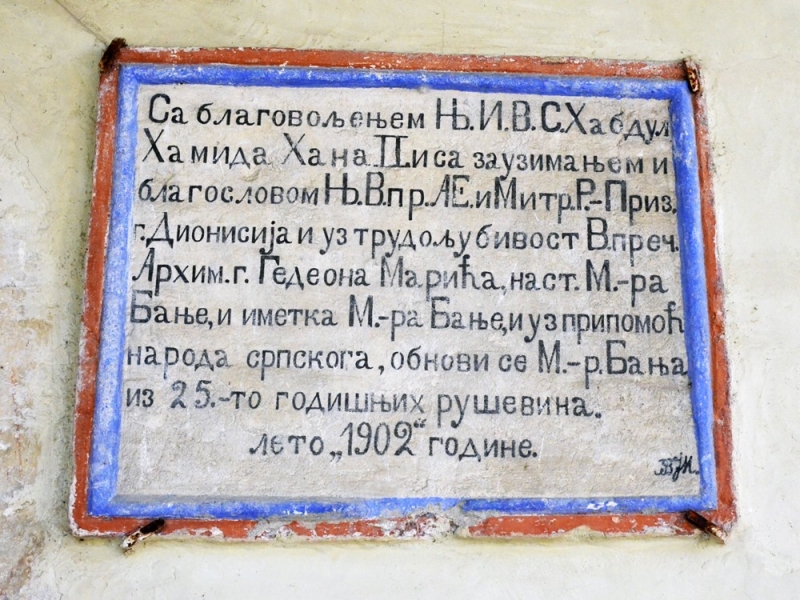 Са благовољењем Њ.И.В.С.Хабдул
Хамида Хана II и са заузимањем и
благословом Њ.В.пр.АЕ.и Митр.Р.-Приз.
г.Дионисија и уз трудољубивост В.преч.
Архим.г. Гедеона Марића, наст. М.-ра
Бање, и иметка М.-ра Бање, и уз припомоћ
народа српскога, обнови се М.-р.Бања
из 25.-то годишњих рушевина.
лето „1902“ године.
ВЈМ.